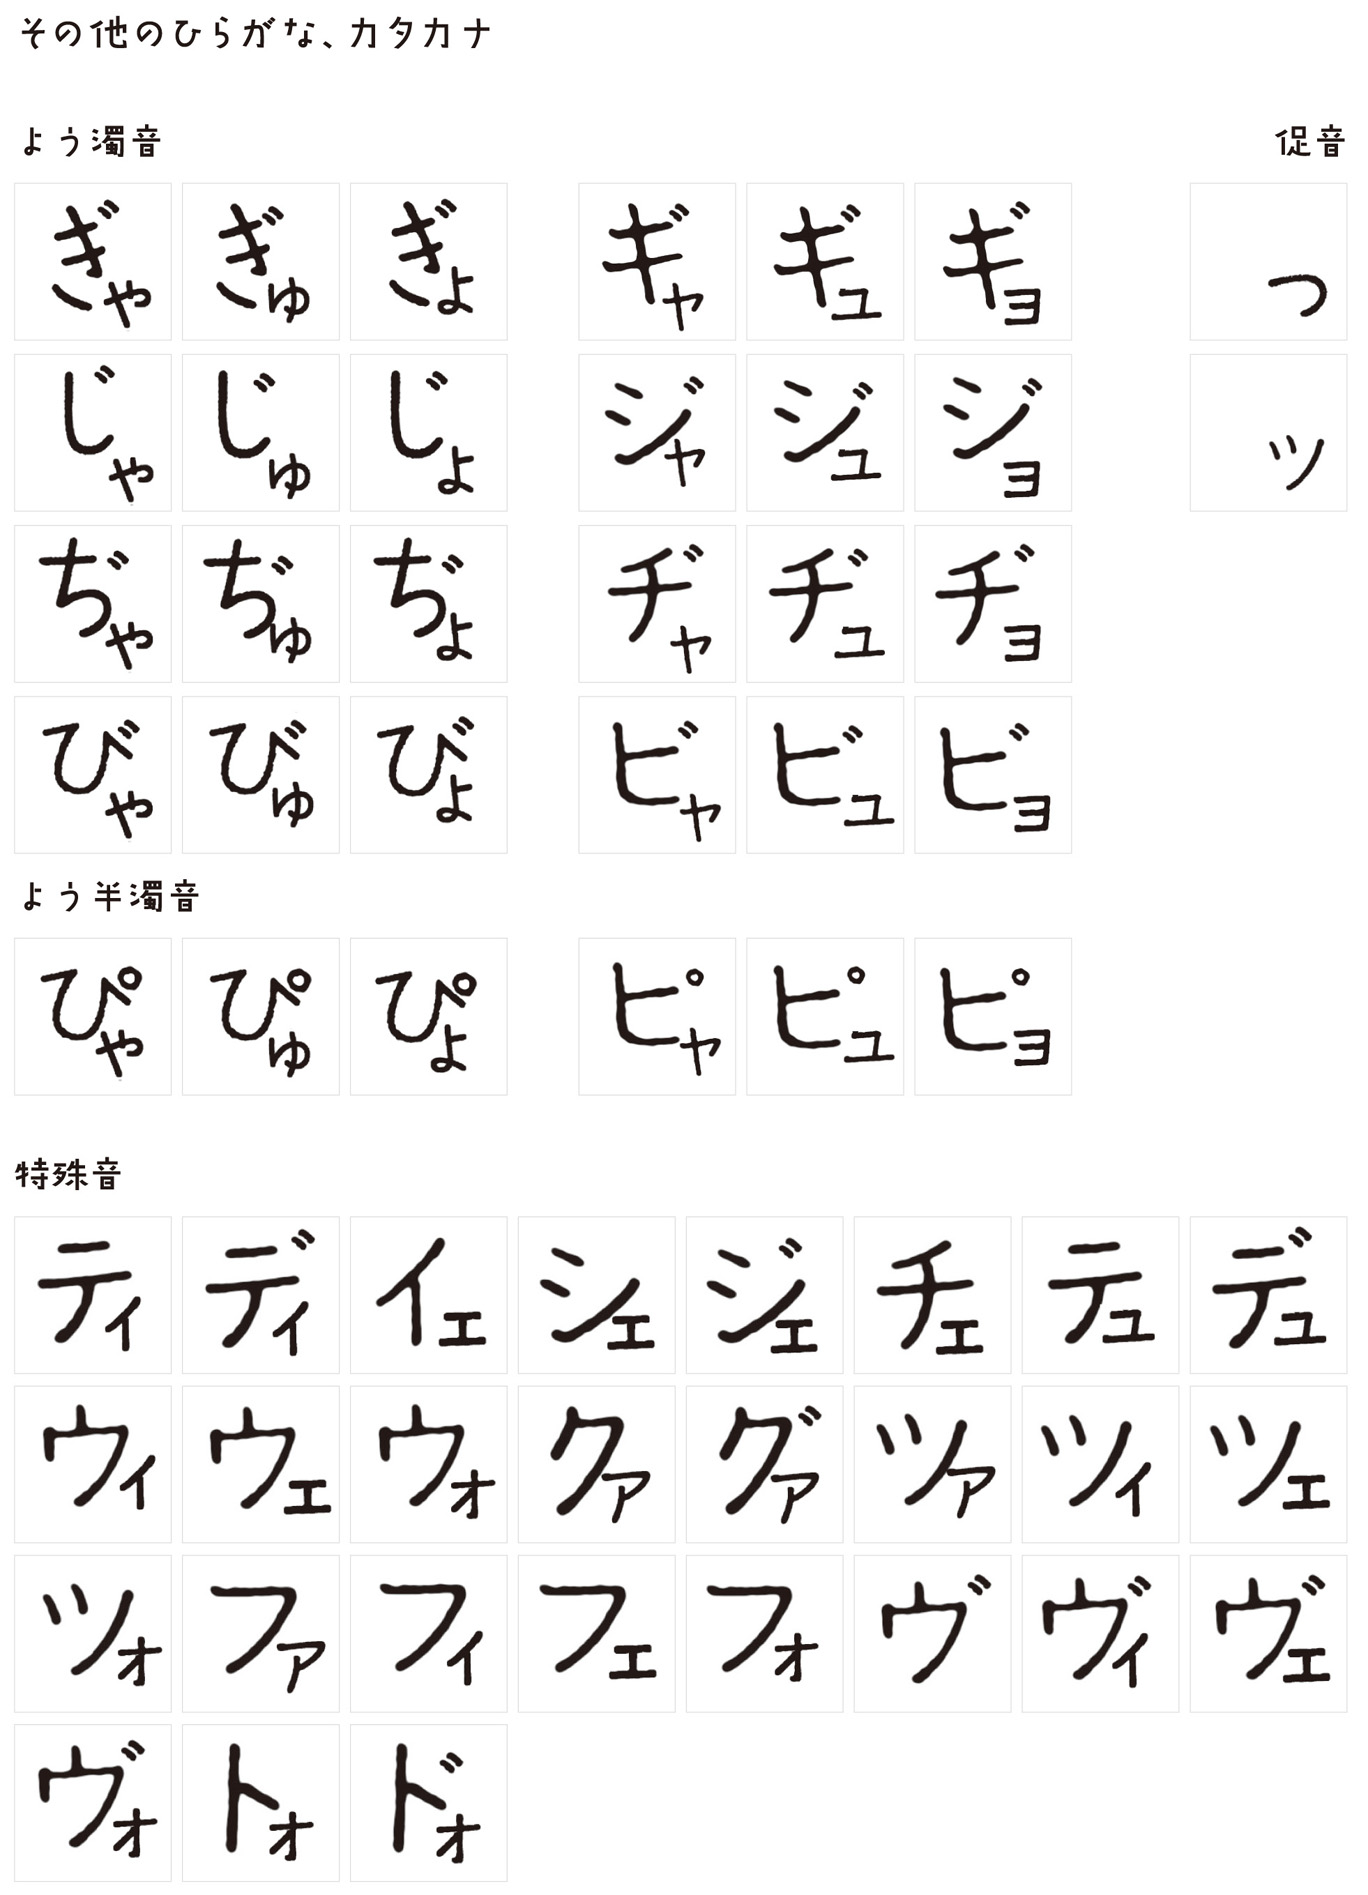 その他のひらがな、カタカナ
よう濁音 促音
ぎゃ ぎゅ ぎょ ギャ ギュ ギョ っ
じゃ じゅ じょ ジャ ジュ ジョ ッ
ぢゃ ぢゅ ぢょ ヂャ ヂュ ヂョ
びゃ びゅ びょ ビャ ビュ ビョ
よう半濁音
ぴゃ ぴゅ ぴょ ピャ ピュ ピョ
特殊音
ティ ディ イェ シェ ジェ チェ テュ デュ
ウィ ウェ ウォ クァ グァ ツァ ツィ ツェ
ツォ ファ フィ フェ フォ ヴ ヴィ ヴェ
ヴォ トォ ドォ